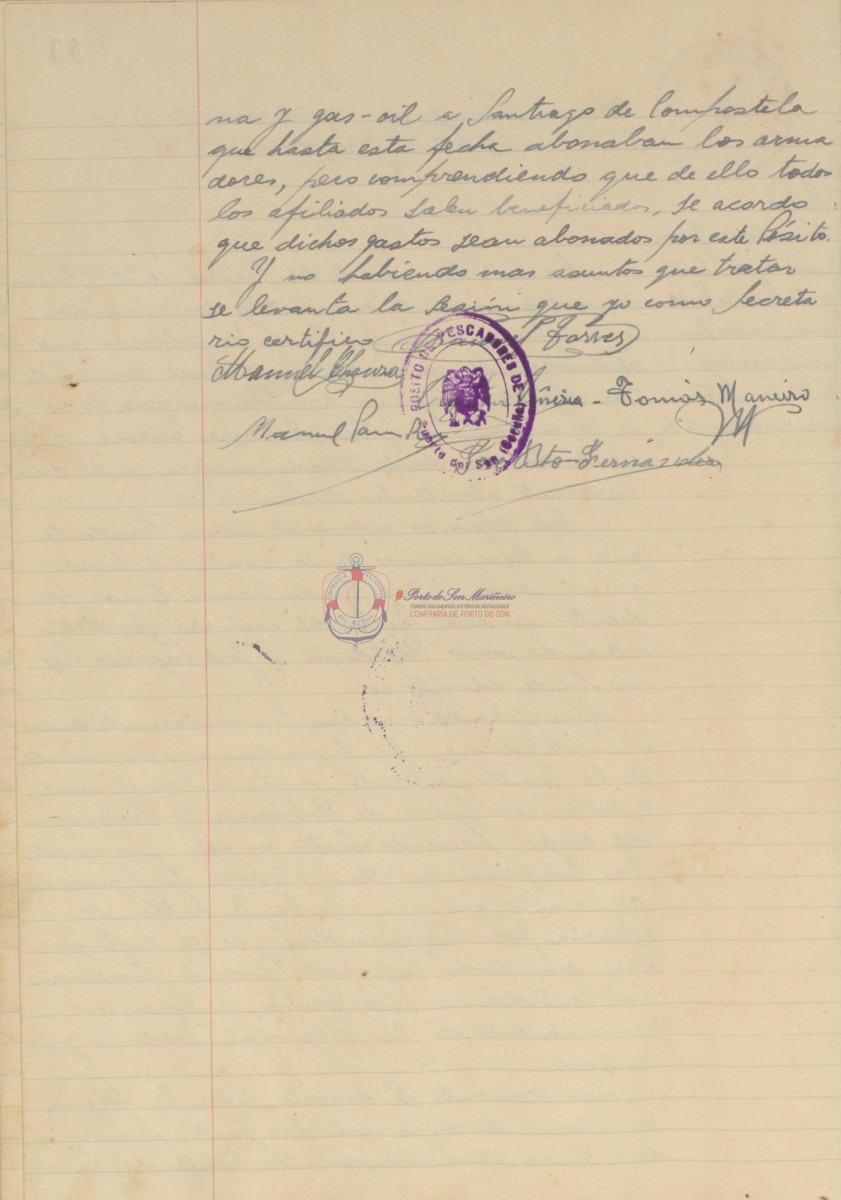 na y gas-oil a Santiago de Compostela
que hasta esta fecha abonaban los arma
dores, pero comprendiendo que de ello todos
los afiliados salen beneficiados, se acordo
que dichos gastos sean abonados por este Pósito.
Y no habiendo mas asuntos que tratar
se levanta la sesión que yo como Secreta
rio certifico Torres
Manuel
POSITO DE PESCADORES DE
Puerto del Son (Coruña)
Tomás Maneiro
Manuel
Fernández
#PortodoSonMariñeiro
FONDOS DOCUMENTAIS HISTÓRICOS DIXITALIZADOS
CONFRARIA DE PORTO DO SON